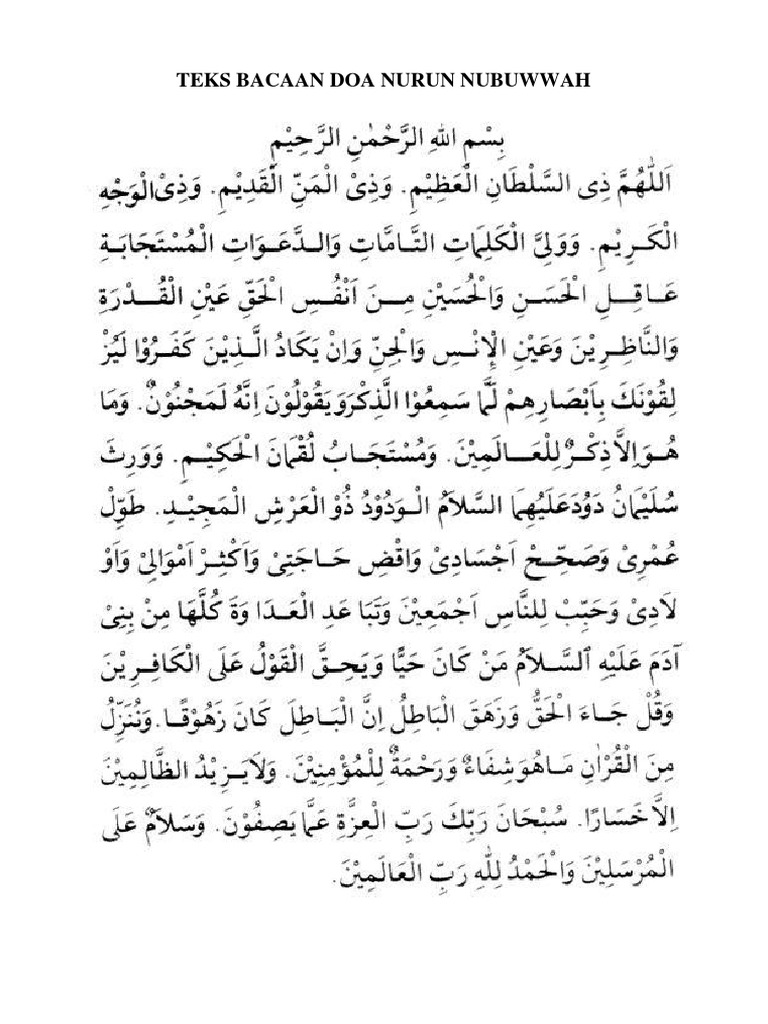 TEKS BACAAN DOA NURUN NUBUWWAH
بِسْمِ اللهِ الرَّحْمٰنِ الرَّحِيْمِ
اَللّٰهُمَّ ذِى السُّلْطَانِ الْعَظِيْمِ. وَذِىْ الْمَنِّ الْقَدِيْمِ. وَذِىْ الْوَجْهِ
الْكَرِيْمِ. وَوَلِيَّ الْكَلِمَاتِ التَّامَّاتِ وَالدَّعَوَاتِ الْمُسْتَجَابَةِ
عَاقِلِ الْحَسَنِ وَالْحُسَيْنِ مِنَ اَنْفُسِ الْحَقِّ عَيْنِ الْقُدْرَةِ
وَالنَّاظِرِيْنَ وَعَيْنِ الْاِنْسِ وَالْجِنِّ وَاِنْ يَكَادُ الَّذِيْنَ كَفَرُوْا لَيُزْ
لِقُوْنَكَ بِاَبْصَارِهِمْ لَمَّا سَمِعُوْا الذِّكْرَ وَيَقُوْلُوْنَ اِنَّهُ لَمَجْنُوْنٌ. وَمَا
هُوَ اِلاَّ ذِكْرٌ لِلْعَالَمِيْنَ. وَمُسْتَجَابُ لُقْمَانَ الْحَكِيْمِ. وَوَرِثَ
سُلَيْمَانُ دَوُدَ عَلَيْهِمَا السَّلاَمُ الْوَدُوْدُ ذُو الْعَرْشِ الْمَجِيْدِ. طَوِّلْ
عُمْرِىْ وَصَحِّحْ اَجْسَادِىْ وَاقْضِ حَاجَتِىْ وَاَكْثِرْ اَمْوَالِىْ وَاَوْ
لاَدِىْ وَحَبِّبْ لِلنَّاسِ اَجْمَعِيْنَ وَتَبَا عَدِ الْعَدَا وَةَ كُلَّهَا مِنْ بَنِىْ
آدَمَ عَلَيْهِ السَّلاَمُ مَنْ كَانَ حَيًّا وَيَحِقَّ الْقَوْلُ عَلَى الْكَافِرِيْنَ
وَقُلْ جَاءَ الْحَقُّ وَزَهَقَ الْبَاطِلُ اِنَّ الْبَاطِلَ كَانَ زَهُوْقًا. وَنُنَزِّلُ
مِنَ الْقُرْاٰنِ مَاهُوَ شِفَاءٌ وَرَحْمَةٌ لِلْمُؤْمِنِيْنَ. وَلاَ يَزِيْدُ الظَّالِمِيْنَ
اِلاَّ خَسَارًا. سُبْحَانَ رَبِّكَ رَبِّ الْعِزَّةِ عَمَّا يَصِفُوْنَ. وَسَلاَمٌ عَلَى
الْمُرْسَلِيْنَ وَالْحَمْدُ لِلّٰهِ رَبِّ الْعَالَمِيْنَ.